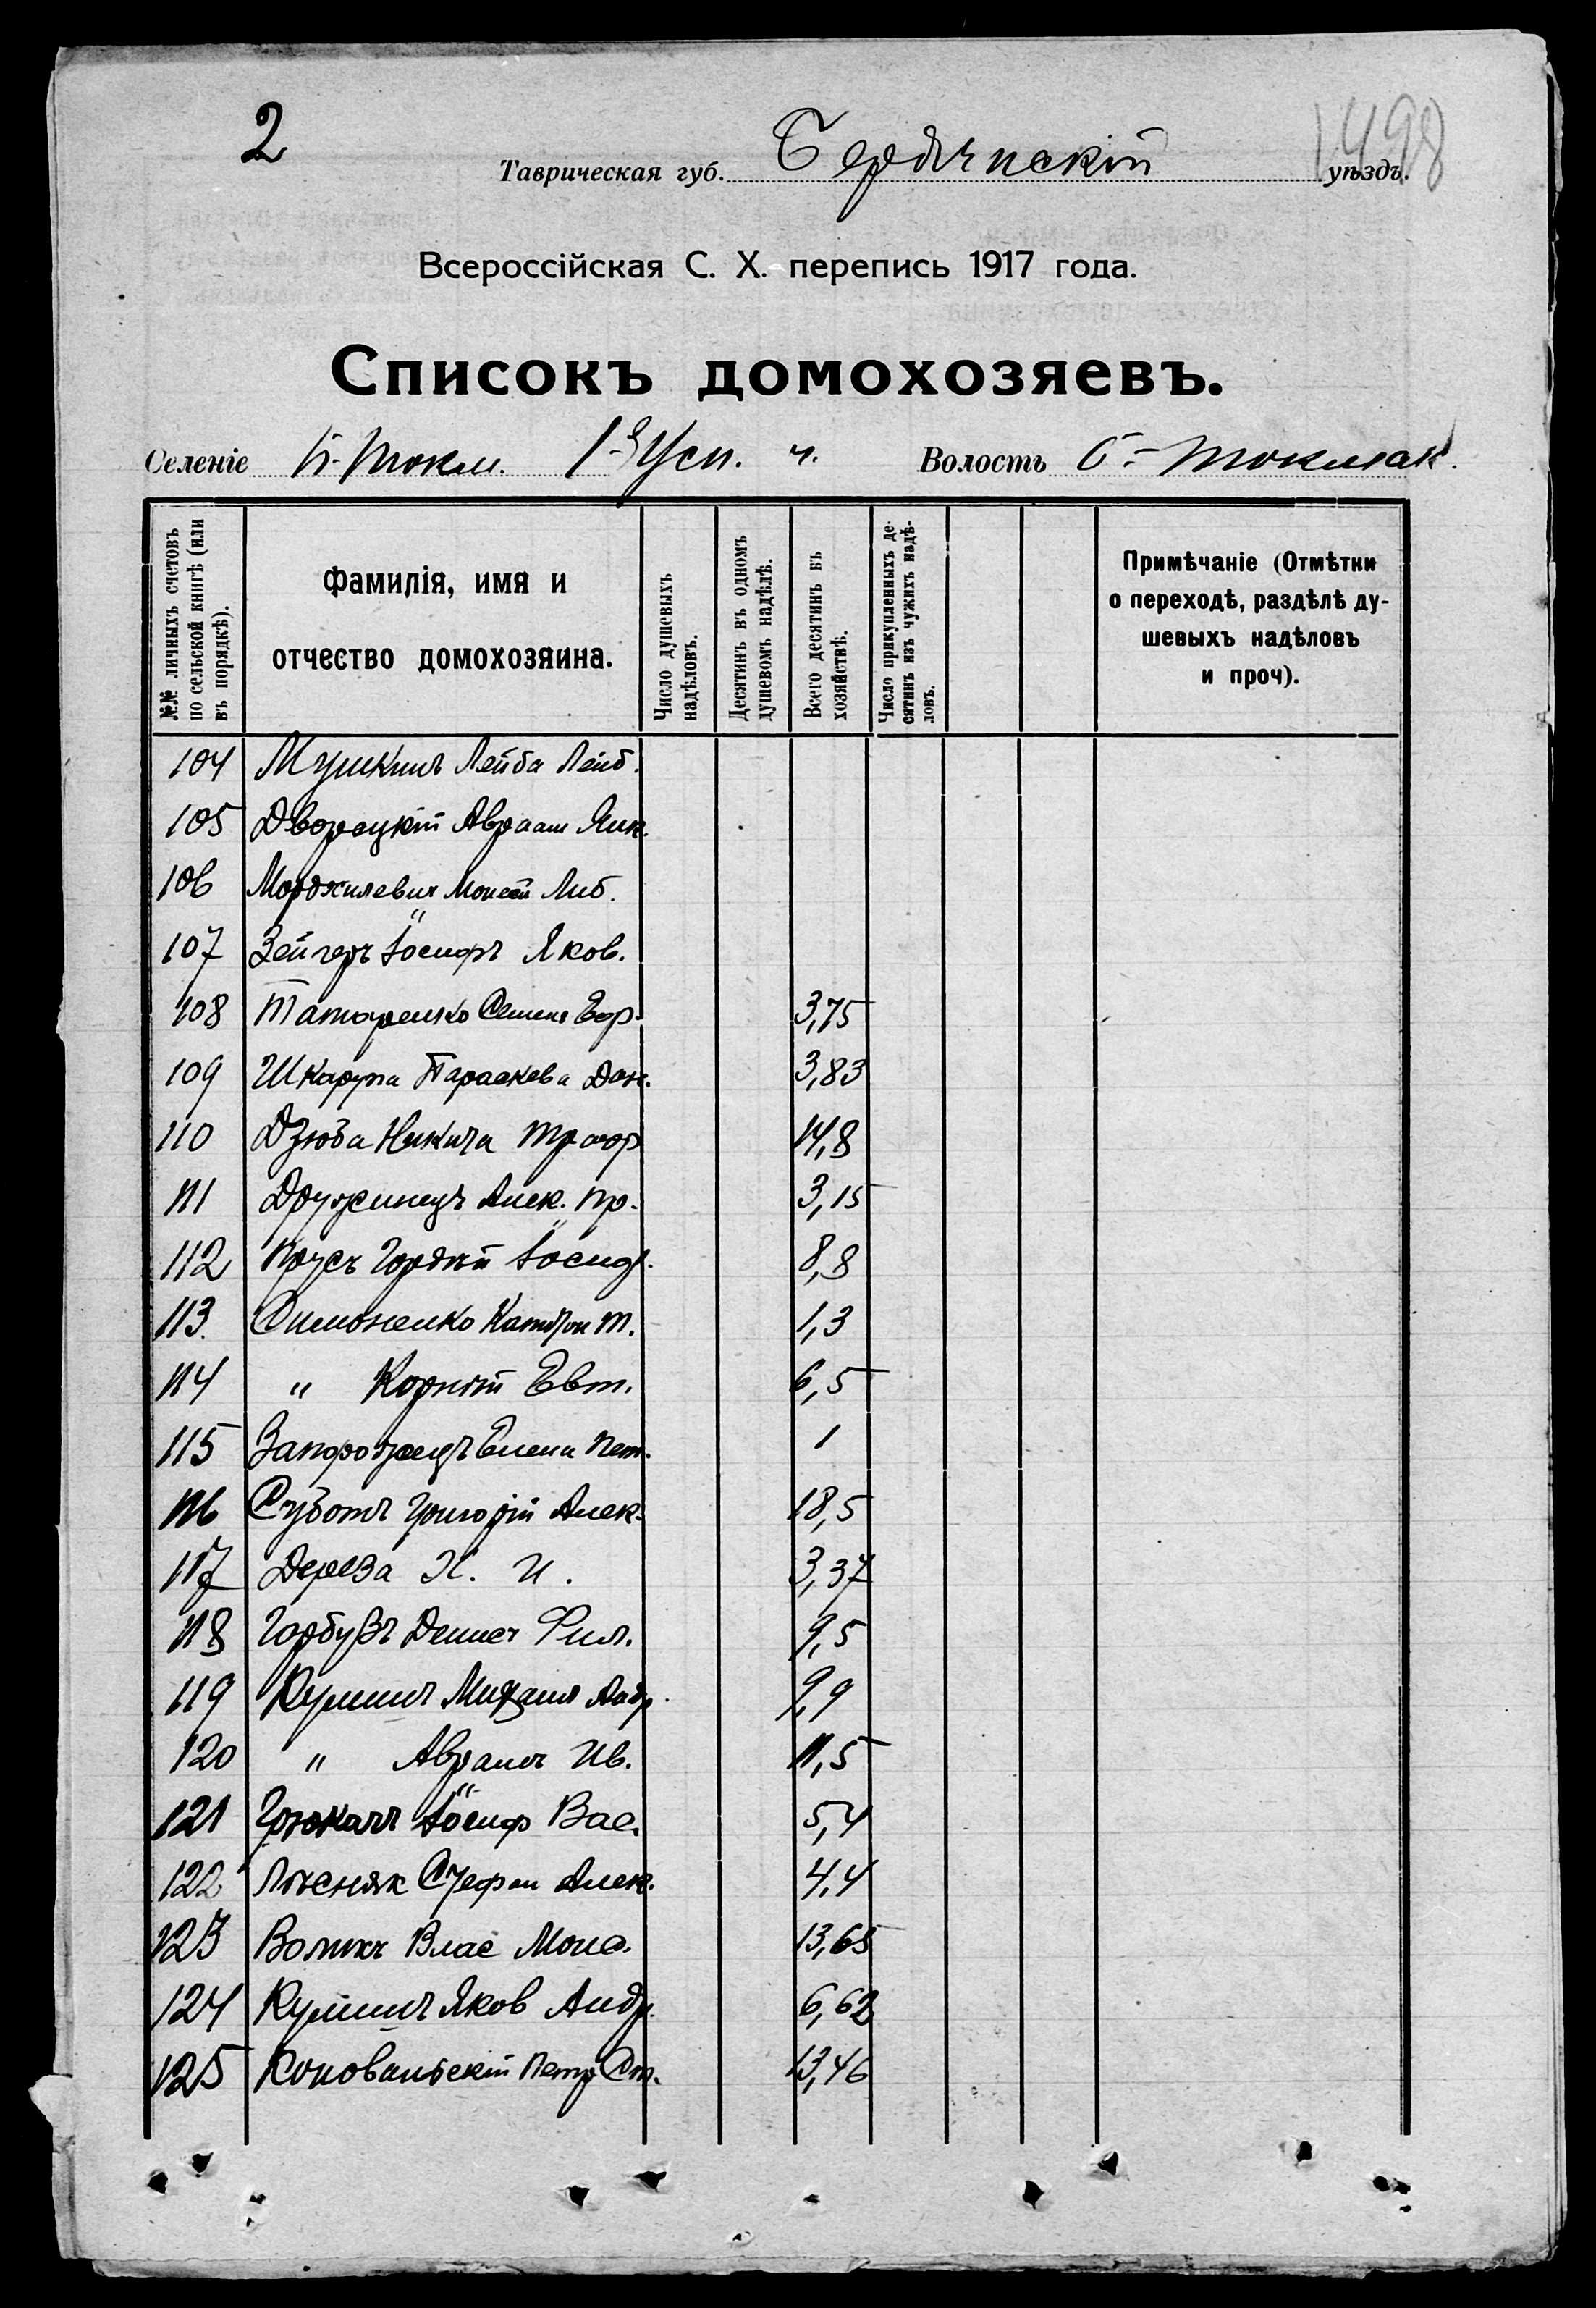 2
1498
Таврическая губ. Бердянскій уѣздъ.
Всероссійская С. Х. перепись 1917 года.
Списокъ домохозяевъ.
Селеніе Б-Токм. 1-я Усп. ч. Волость Б-Токмак.
№№ личныхъ счетовъ по сельской книгѣ (или въ порядкѣ).
Фамилія, имя и отчество домохозяина.
Число душевыхъ надѣловъ.
Десятинъ въ одномъ душевомъ надѣлѣ.
Всего десятинъ въ хозяйствѣ.
Число прикупленныхъ десятинъ изъ чужихъ надѣловъ.
Примѣчаніе (Отмѣтки о переходѣ, раздѣлѣ душевыхъ надѣловъ и проч).
104 Мушкинъ Лейба Лейб.
105 Дворецкій Авраам Янк.
106 Моисей Либ.
107 Зейгеръ Іосифъ Яков.
108 Татаренко Семенъ Еф. 3,75
109 Шкарупа Параскева Дан. 3,83
110 Дзюба Никита Троф. 14,8
111 Дружинецъ Алек. Тр. 3,15
112 Прусъ Гордѣй Іосиф. 8,8
113. Симоненко Т. 1,3
114 " Корнѣй Евт. 6,5
115 Запорожецъ Елена Пет. 1
116 Суботъ Григорій Алек. 18,5
117 Дереза Х. И. 3,37
118 Горбузъ Денис Фил. 9,5
119 Кулишъ Михаил Андр. 9,9
120 " Аврамъ Ив. 11,5
121 Іосиф Вас. 5,4
122 Лѣсняк Стефан Алек. 4,4
123 Воликъ Влас Моис. 13,65
124 Кулишъ Яков Андр. 6,62
125 Коновальскій Петр Ст. 13,46